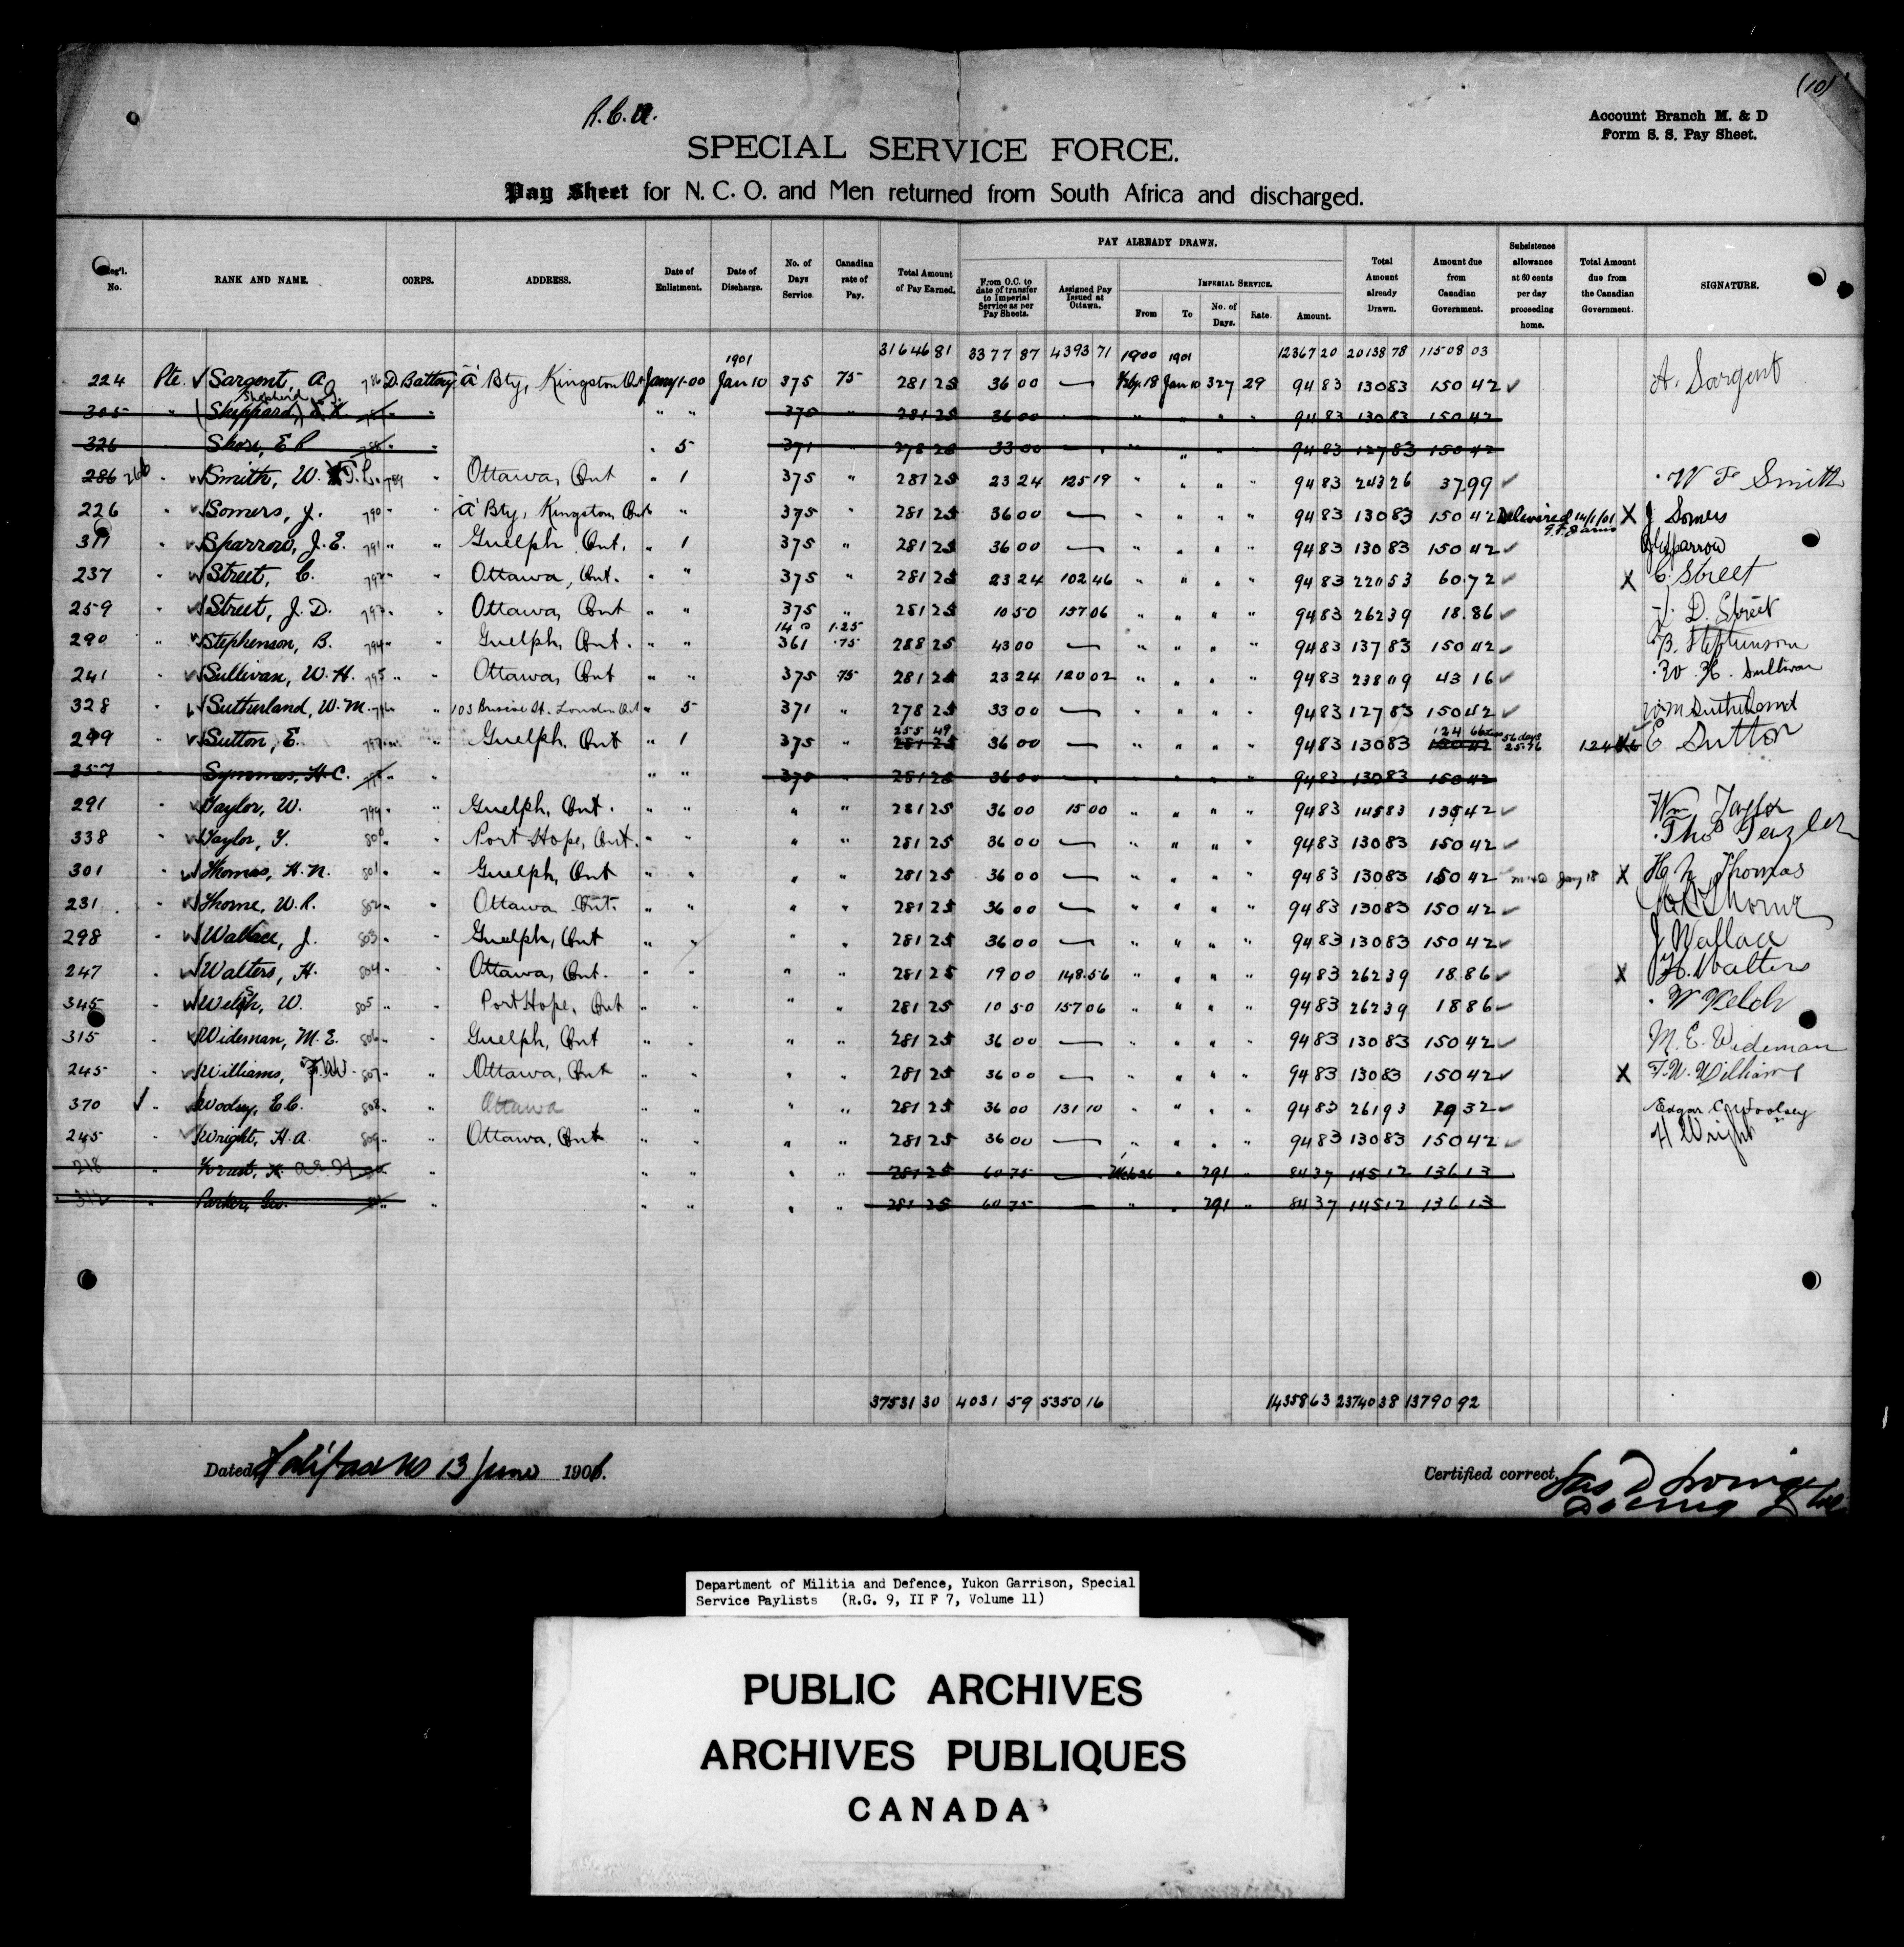 (10)
R.C.A.
Account Branch M. & D
Form S. S. Pay Sheet.
SPECIAL SERVICE FORCE.
Pay Sheet for N. C. O. and Men returned from South Africa and discharged.
Reg'l. No. RANK AND NAME. CORPS. ADDRESS. Date of Enlistment. Date of Discharge. No. of Days Service. Canadian rate of Pay. Total Amount of Pay Earned. PAY ALREADY DRAWN. From O.C. to date of transfer to Imperial Service as per Pay Sheets. Assigned Pay Issued at Ottawa. IMPERIAL SERVICE. From To No. of Days. Rate. Amount. Total Amount already Drawn. Amount due from Canadian Government. Subsistence allowance at 60 cents per day proceeding home. Total Amount due from the Canadian Government. SIGNATURE.
1901 31646 81 3377 87 4393 71 1900 1901 12367 20 20138 78 11508 03
224 Pte. Sargent, A. 786 D. Battery "A" Bty, Kingston Ont Jany 1-00 Jan 10 375 75 281 25 36 00 — Feby 18 Jan 10 327 29 94 83 130 83 150 42 A. Sargent
305 " (Sheppard, Shepherd " " " " 375 " 281 25 36 00 — " " " " 94 83 130 83 150 42
326 Shore, E R 788 " " 5 371 278 25 33 00 — " " 94 83 127 83 150 42
286 266 " Smith, W. F. 789 " Ottawa, Ont " 1 375 " 281 25 23 24 125 19 " " " " 94 83 243 26 37.99 W F Smith
226 " Somers, J. 790 " " "A" Bty, Kingston, Ont " 375 " 281 25 36 00 — " " " " 94 83 130 83 150 42 Delivered 14/1/01 X J Somers
311 " Sparrow, J. E. 791 " " Guelph Ont. " 1 375 " 281 25 36 00 — " " " " 94 83 130 83 150 42 J E Sparrow
237 " Street, C. 792 " " Ottawa, Ont. " " 375 " 281 25 23 24 102 46 " " " " 94 83 220 53 60.72 X C. Street
259 " Street, J. D. 793 " " Ottawa, Ont " " 375 " 281 25 10 50 157 06 " " " " 94 83 262 39 18.86 J. D. Street
14 @ 1.25
290 " Stephenson, B. 794 " " Guelph, Ont. " " 361 .75 288 25 43 00 — " " " " 94 83 137 83 150 42 B. Stephenson
241 " Sullivan, W. H. 795 " " Ottawa, Ont " " 375 75 281 25 23 24 120 02 " " " " 94 83 238 09 43 16 W. H. Sullivan
328 " Sutherland, W. M. 796 " 103 St. London Ont " 5 371 " 278 25 33 00 — " " " " 94 83 127 83 150 42 W M Sutherland
255 49 124 66 56 days
299 " Sutton, E. 797 " " Guelph. Ont " 1 375 " 281 25 36 00 — " " " " 94 83 130 83 150 42 25.76 124 66 E Sutton
357 Symmes, H. C. " " " " 375 281 25 36 00 94 83 130 83 150 42
291 " Taylor, W. 799 " " Guelph, Ont. " " " " 281 25 36 00 15 00 " " " " 94 83 145 83 135 42 Wm Taylor
338 " Taylor, T. 800 " " Port Hope, Ont. " " " " 281 25 36 00 — " " " " 94 83 130 83 150 42 Thos Tayler
301 " Thomas, H. N. 801 " " Guelph, Ont " " " " 281 25 36 00 — " " " " 94 83 130 83 150 42 Jany 18 X H N Thomas
231 " Thorne, W. R. 802 " " Ottawa Ont. " " " " 281 25 36 00 — " " " " 94 83 130 83 150 42 W R Thorne
298 " Wallace, J. 803 " Guelph, Ont " " " " 281 25 36 00 — " " " " 94 83 130 83 150 42 J Wallace
247 " Walters, H. 804 " " Ottawa, Ont. " " " " 281 25 19 00 148.56 " " " " 94 83 262 39 18.86 X H. Walters
345 " Welsh, W. 805 " " Port Hope, Ont " " " " 281 25 10 50 157 06 " " " " 94 83 262 39 18 86 W Welch
315 Wideman, M. E. 806 " " Guelph, Ont " " " " 281 25 36 00 — " " " " 94 83 130 83 150 42 M. E. Wideman
245 " Williams, F. W. 807 " " Ottawa, Ont " " " " 281 25 36 00 — " " " " 94 83 130 83 150 42 X F. W. Williams
370 " Woolsey, E. C. 808 " " Ottawa " " " " 281 25 36 00 131 10 " " " " 94 83 261 93 19 32 Edgar C Woolsey
245 " Wright, H. A. 809 " " Ottawa, Ont " " " " 281 25 36 00 — " " " " 94 83 130 83 150 42 H Wright
218 " " " " " " 281 25 60 75 — Mch 26 " 291 " 84 37 145 12 136 13
312 " Parker, Geo. " " " " " " 281 25 60 75 — " " 291 " 84 37 145 12 136 13
37531 30 4031 59 5350 16 14358 63 23740 38 13790 92
Dated, Halifax NS 13 June 1901.
Certified correct,
Department of Militia and Defence, Yukon Garrison, Special
Service Paylists (R.G. 9, II F 7, Volume 11)
PUBLIC ARCHIVES
ARCHIVES PUBLIQUES
CANADA